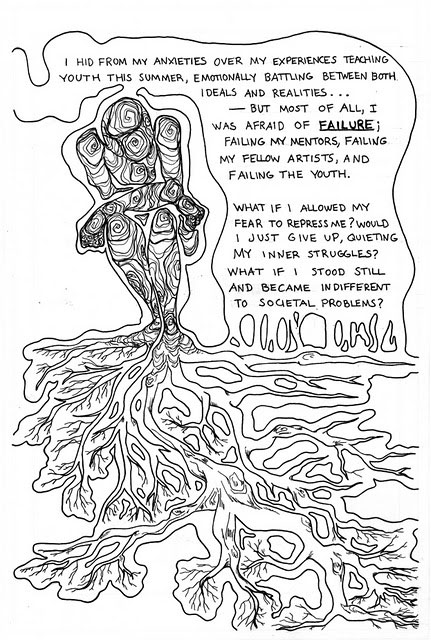 I HID FROM MY ANXIETIES OVER MY EXPERIENCES TEACHING
YOUTH THIS SUMMER, EMOTIONALLY BATTLING BETWEEN BOTH
IDEALS AND REALITIES...
— BUT MOST OF ALL, I
WAS AFRAID OF FAILURE;
FAILING MY MENTORS, FAILING
MY FELLOW ARTISTS, AND
FAILING THE YOUTH.
WHAT IF I ALLOWED MY
FEAR TO REPRESS ME? WOULD
I JUST GIVE UP, QUIETING
MY INNER STRUGGLES?
WHAT IF I STOOD STILL
AND BECAME INDIFFERENT
TO SOCIETAL PROBLEMS?